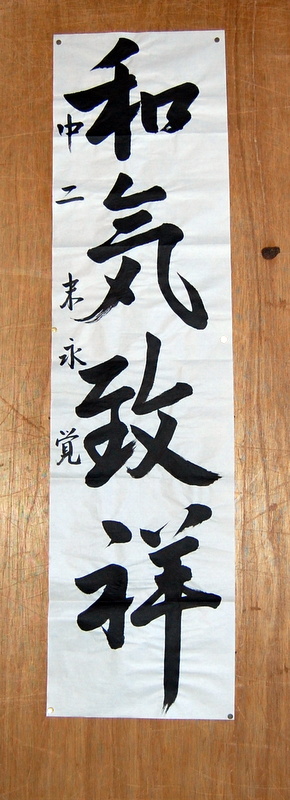 和気致祥
中二 末永覚